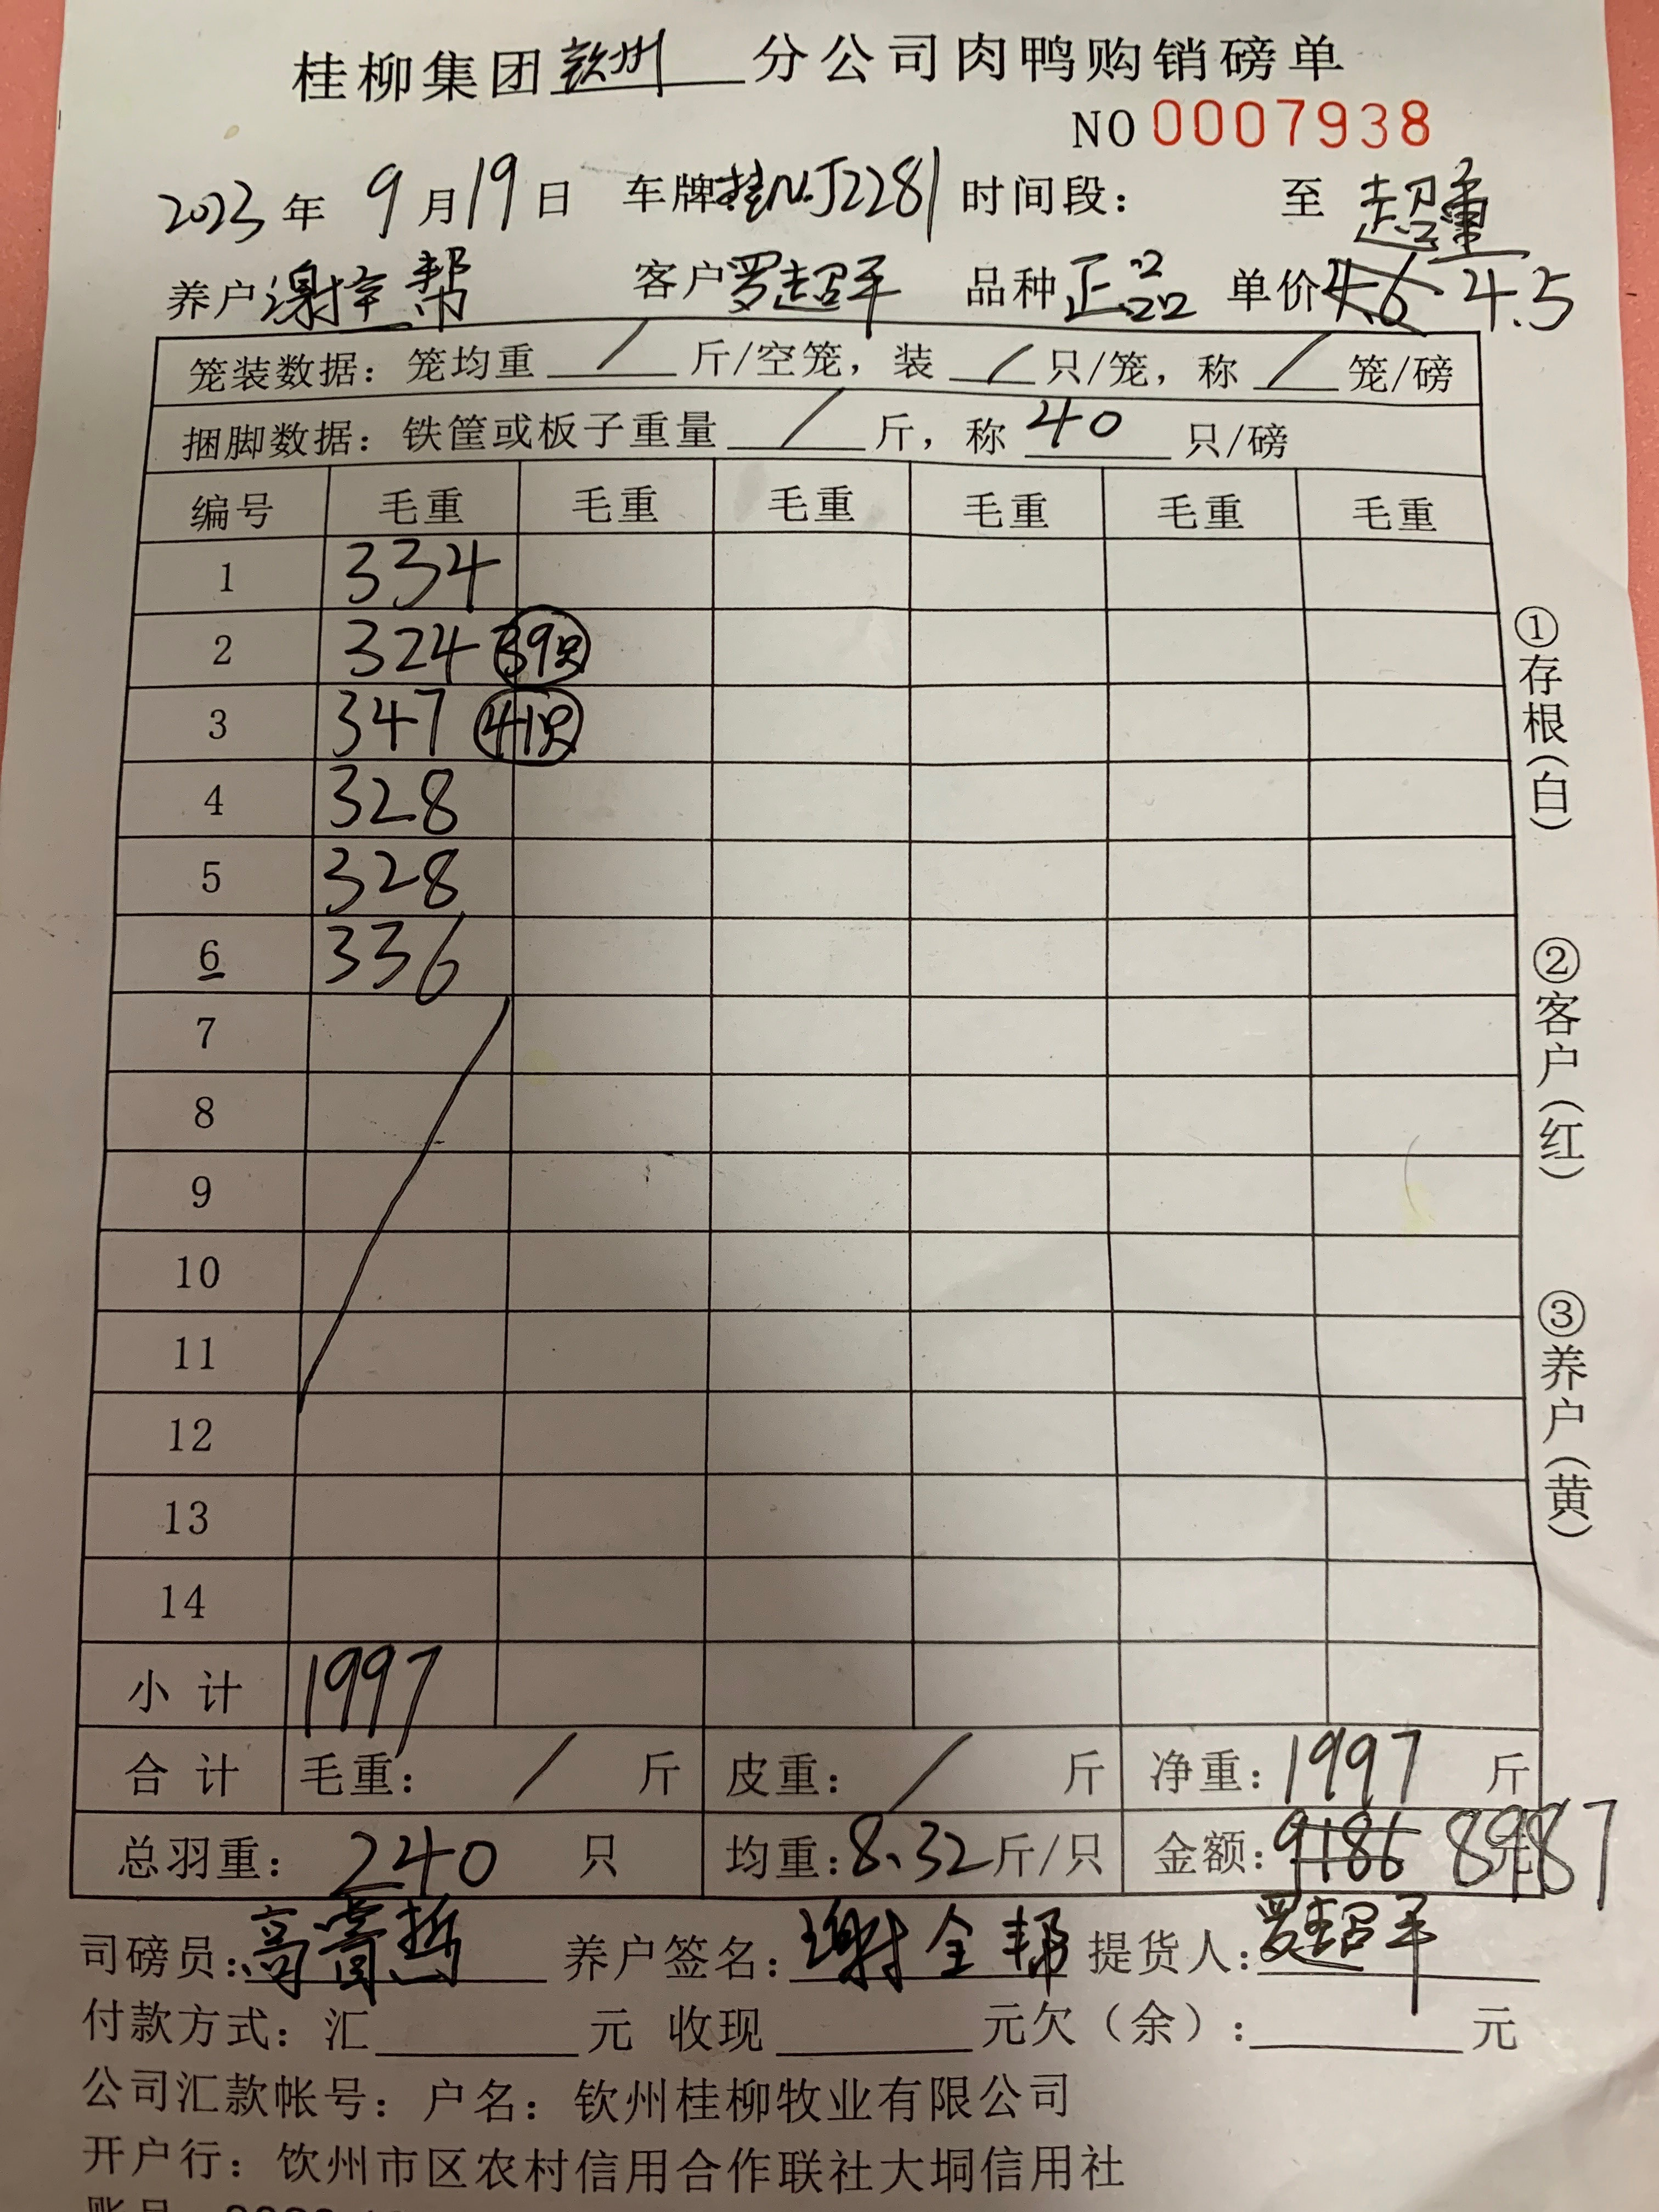 桂柳集团钦州分公司肉鸭购销磅单
NO 0007938
2023年 9月19日 车牌桂N.J2281 时间段： 至 超重
养户谢全帮 客户罗超平 品种正品 单价4.6 4.5
笼装数据：笼均重 / 斤/空笼，装 / 只/笼，称 / 笼/磅
捆脚数据：铁筐或板子重量 / 斤，称 40 只/磅
编号 毛重 毛重 毛重 毛重 毛重 毛重
1 334
2 324 39只
3 347 41只
4 328
5 328
6 336
7
8
9
10
11
12
13
14
小计 1997
合计 毛重： / 斤 皮重： / 斤 净重：1997 斤
总羽重： 240 只 均重：8.32斤/只 金额：9186 8987元
司磅员： 养户签名：谢全帮 提货人：罗超平
付款方式：汇 元 收现 元欠（余）： 元
公司汇款帐号：户名：钦州桂柳牧业有限公司
开户行：钦州市区农村信用合作联社大垌信用社
①存根（白）
②客户（红）
③养户（黄）